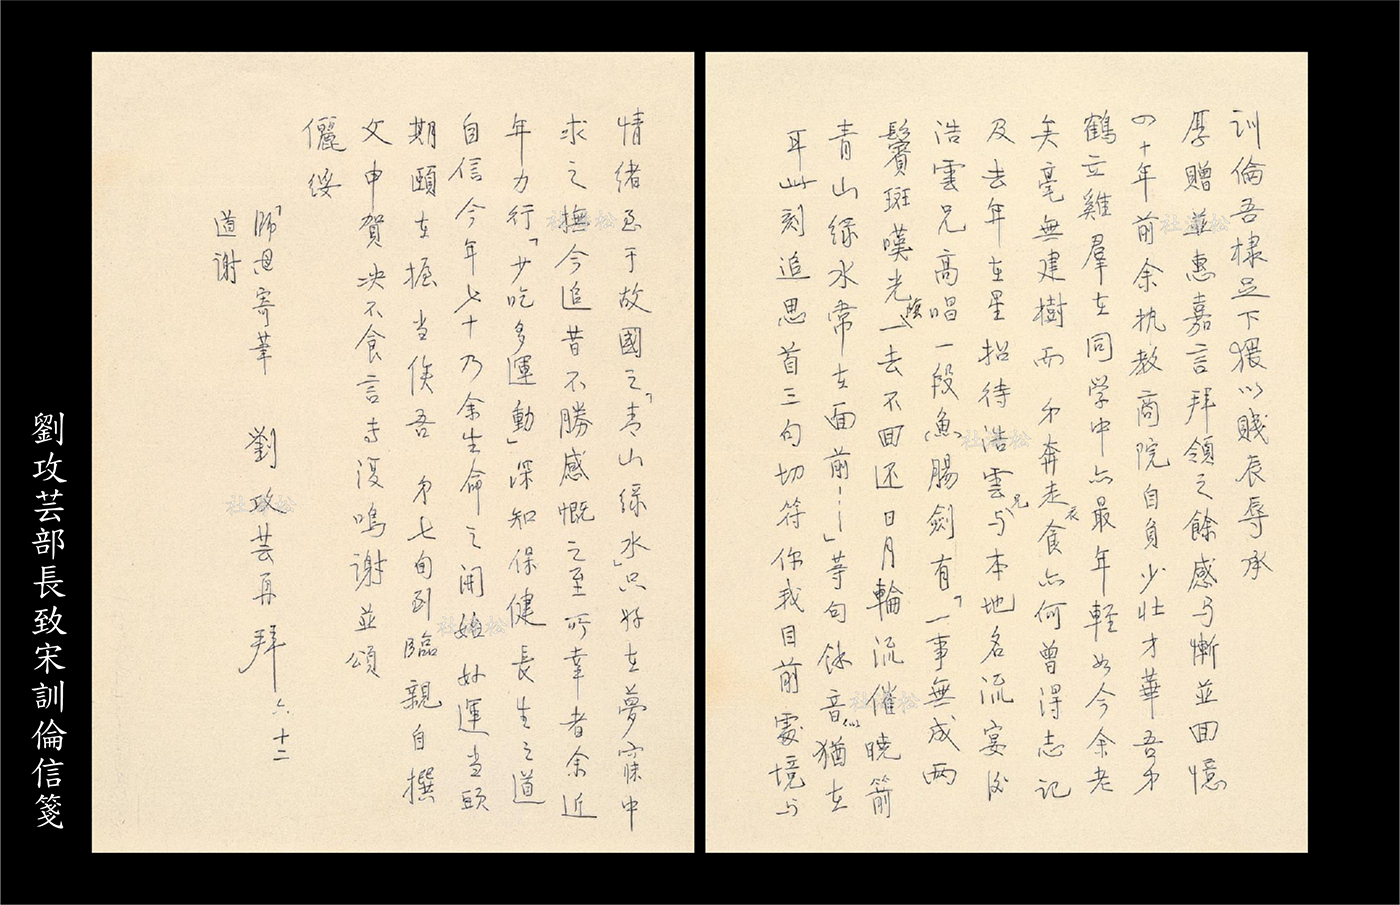 訓倫吾棣足下猥以賤辰辱承
厚贈並惠嘉言拜領之餘感与慚並回憶
四十年前余执教商院自負少壮才華吾弟
鶴立雞羣在同学中亦最年輕如今余老
矣毫無建樹而弟奔走衣食亦何曾得志记
及去年在星招待浩雲兄与本地名流宴後
浩雲兄高唱一段魚腸劍有「一事無成两
鬢斑嘆光陰一去不回还日月輪流催曉箭
青山緑水常在面前……」等句餘音似猶在
耳此刻追思首三句切符你我目前處境与
情绪至于故國之「青山緑水」只好在夢寐中
求之撫今追昔不勝感慨之至所幸者余近
年力行「少吃多運動」深知保健長生之道
自信今年七十乃余生命之開始好運当頭
期頤在握当俟吾弟七旬到臨親自撰
文申賀决不食言专复鳴謝並頌
儷绥
「師恩寄華 劉攻芸再拜 六 十二
道謝
劉攻芸部長致宋訓倫信箋